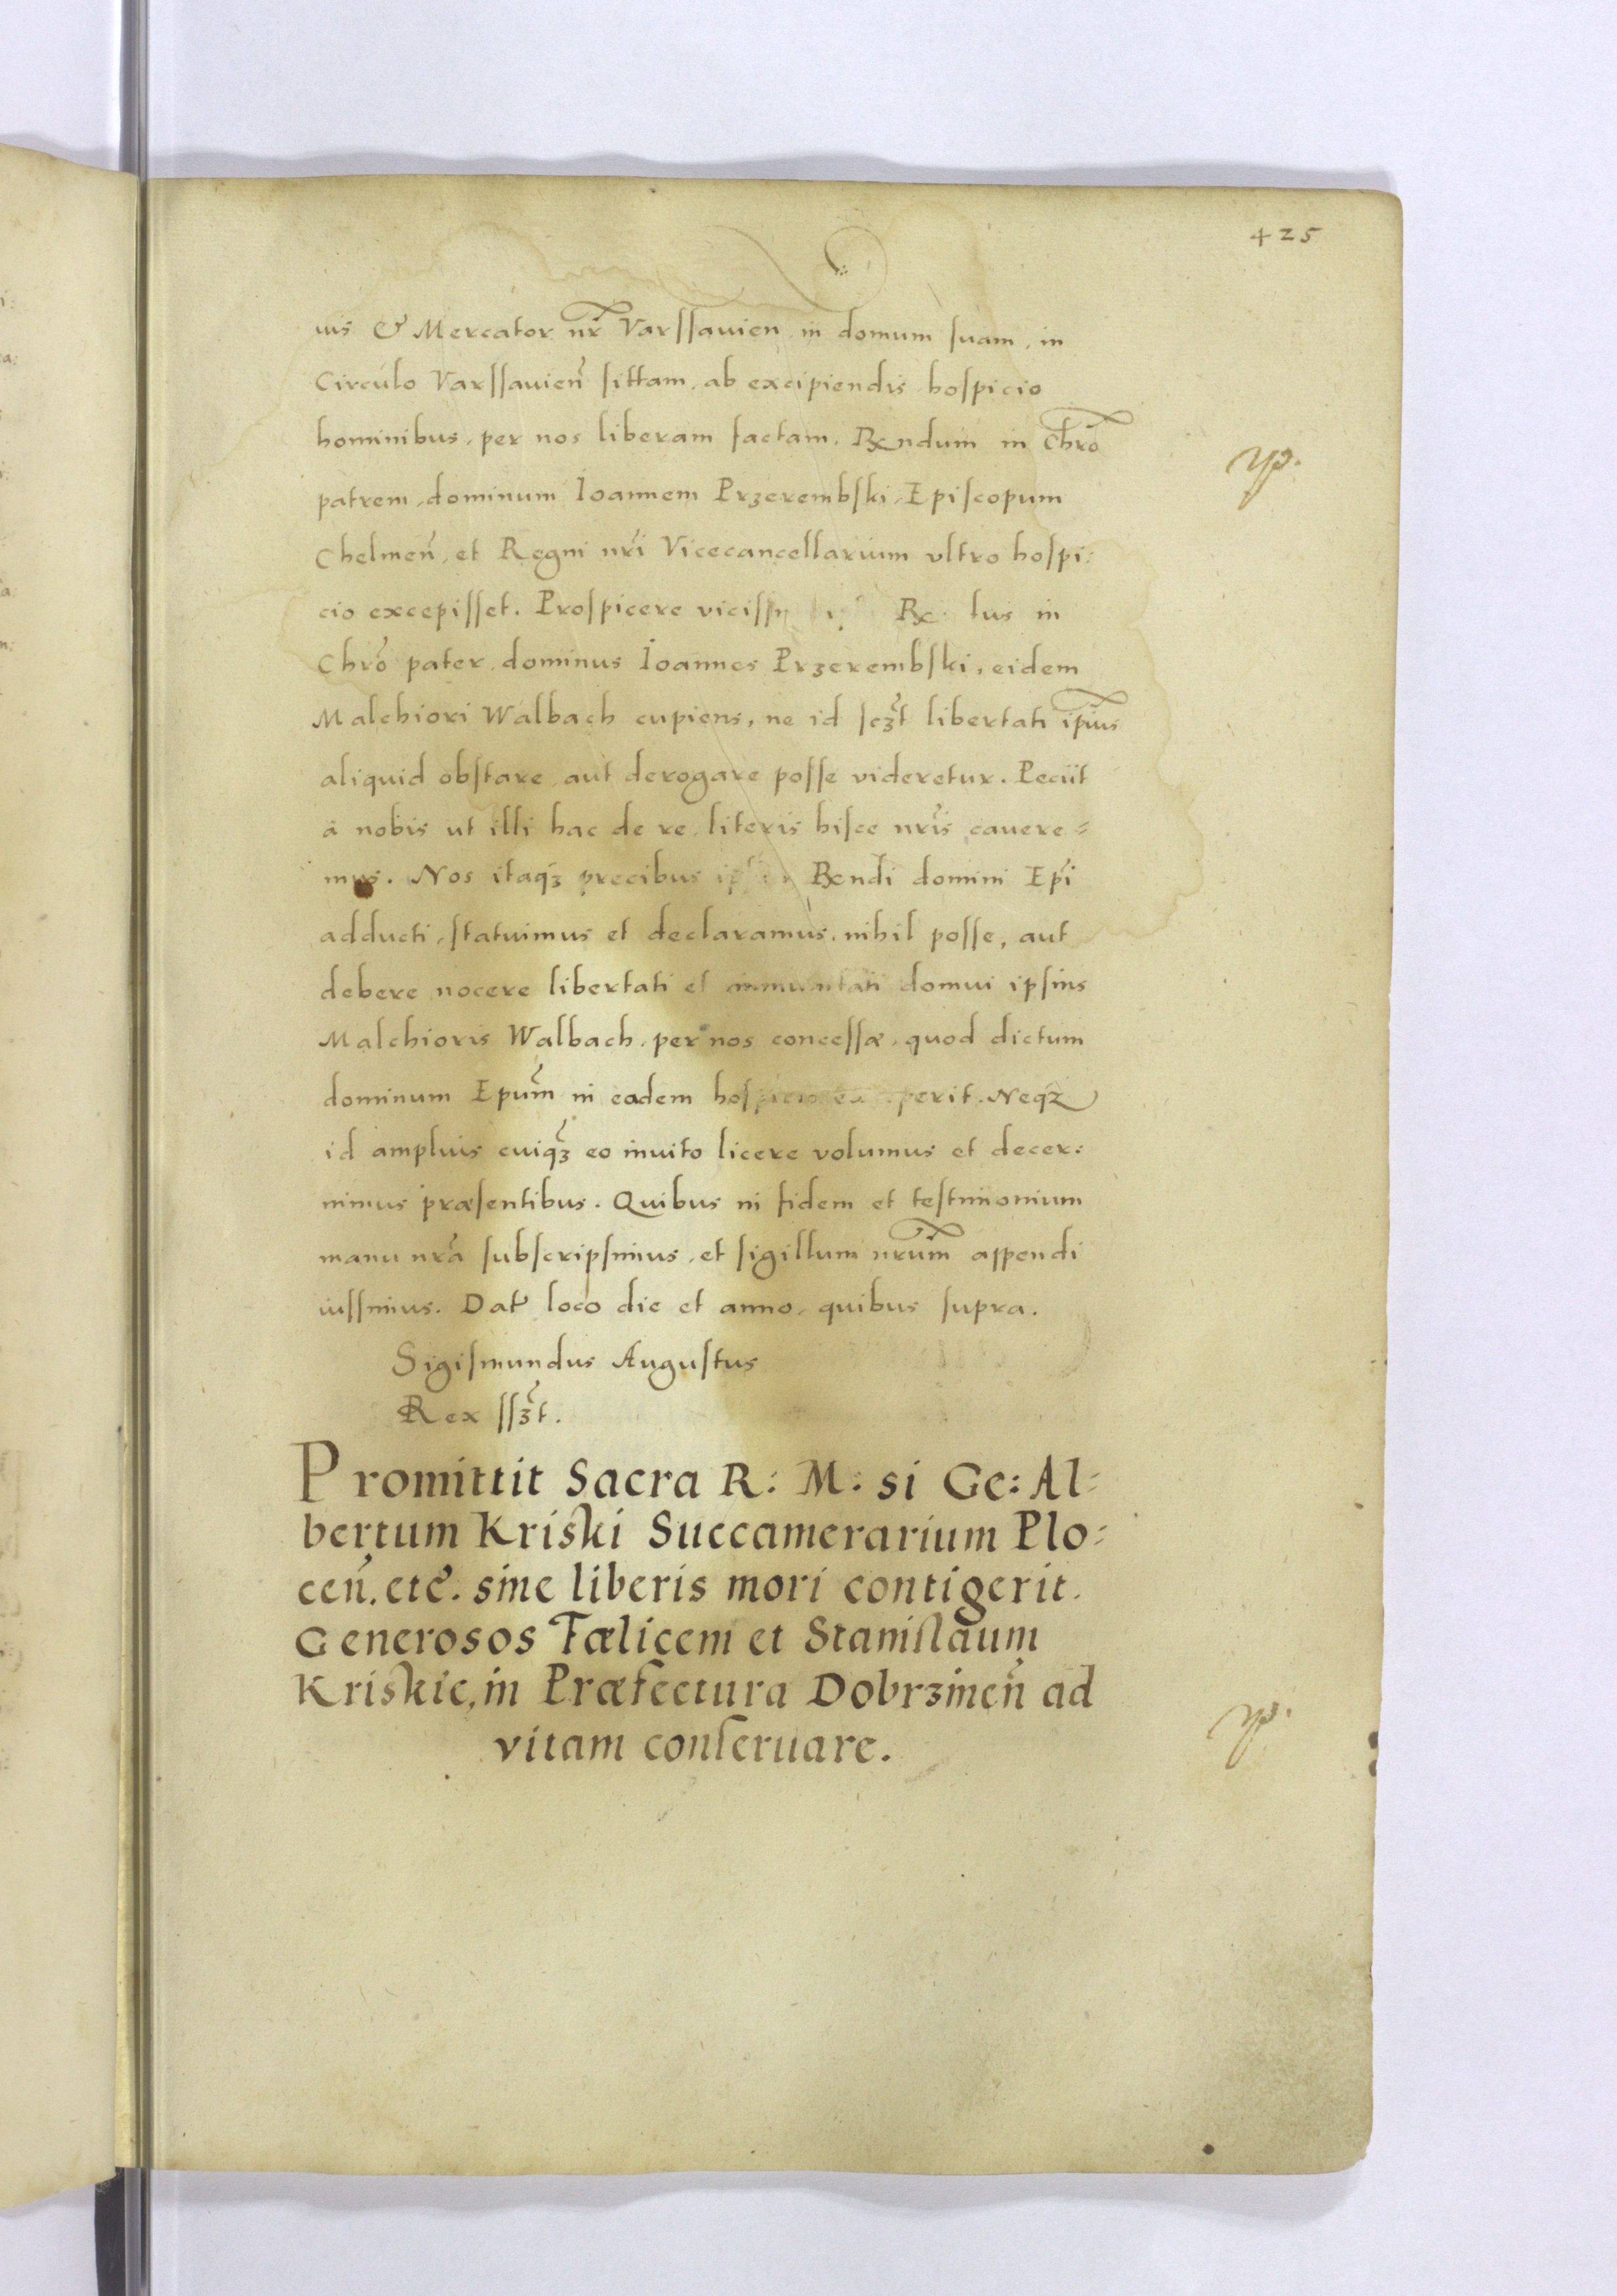 425
uis & Mercator nr̃ Varssauien in domum suam, in
Circulo Varssavien̄ sittam, ab excipiendis hospicio
hominibus, per nos liberam factam, Rx̃ndum in Chrõ
patrem, dominum Ioannem Przerembski, Episcopum
Chelmen̄, et Regni nr̃i Vicecancellarium vltro hospi:
cio excepisset. Prospicere Rx tus in
Chrõ pater, dominus Ioannes Przerembski, eidem
Malchiori Walbach cupiens, ne id scꝫt̃ libertati ip̃ius
aliquid obstare, aut derogare posse videretur. Peciit
à nobis ut illi hac de re, literis hisce nr̃is cauere=
mus. Nos itaqꝫ precibus Rx̃ndi domini Ep̃i
adducti, statuimus et declaramus, nihil posse, aut
debere nocere libertati et immunitati domui ipsius
Malchioris Walbach, per nos concessæ, quod dictum
dominum Epum̃ in eadem hospicio perit. Neqꝫ
id amplius cuiqꝫ̃ eo inuito licere volumus et decer:
nimus præsentibus. Quibus in fidem et testimonium
manu nr̃a subscripsimus, et sigillum nrum̃ appendi
iussimus. Dat̃ loco die et anno, quibus supra.
Sigismundus Augustus
Rex ssꝫt̃.
Promittit Sacra R: M: si Ge: Al=
bertum Kriski Succamerarium Plo=
cen̄. etc̃. sine liberis mori contigerit.
Generosos Fælicem et Stanislaum
Kriskie, in Præfectura Dobrzinen̄ ad
vitam conseruare.